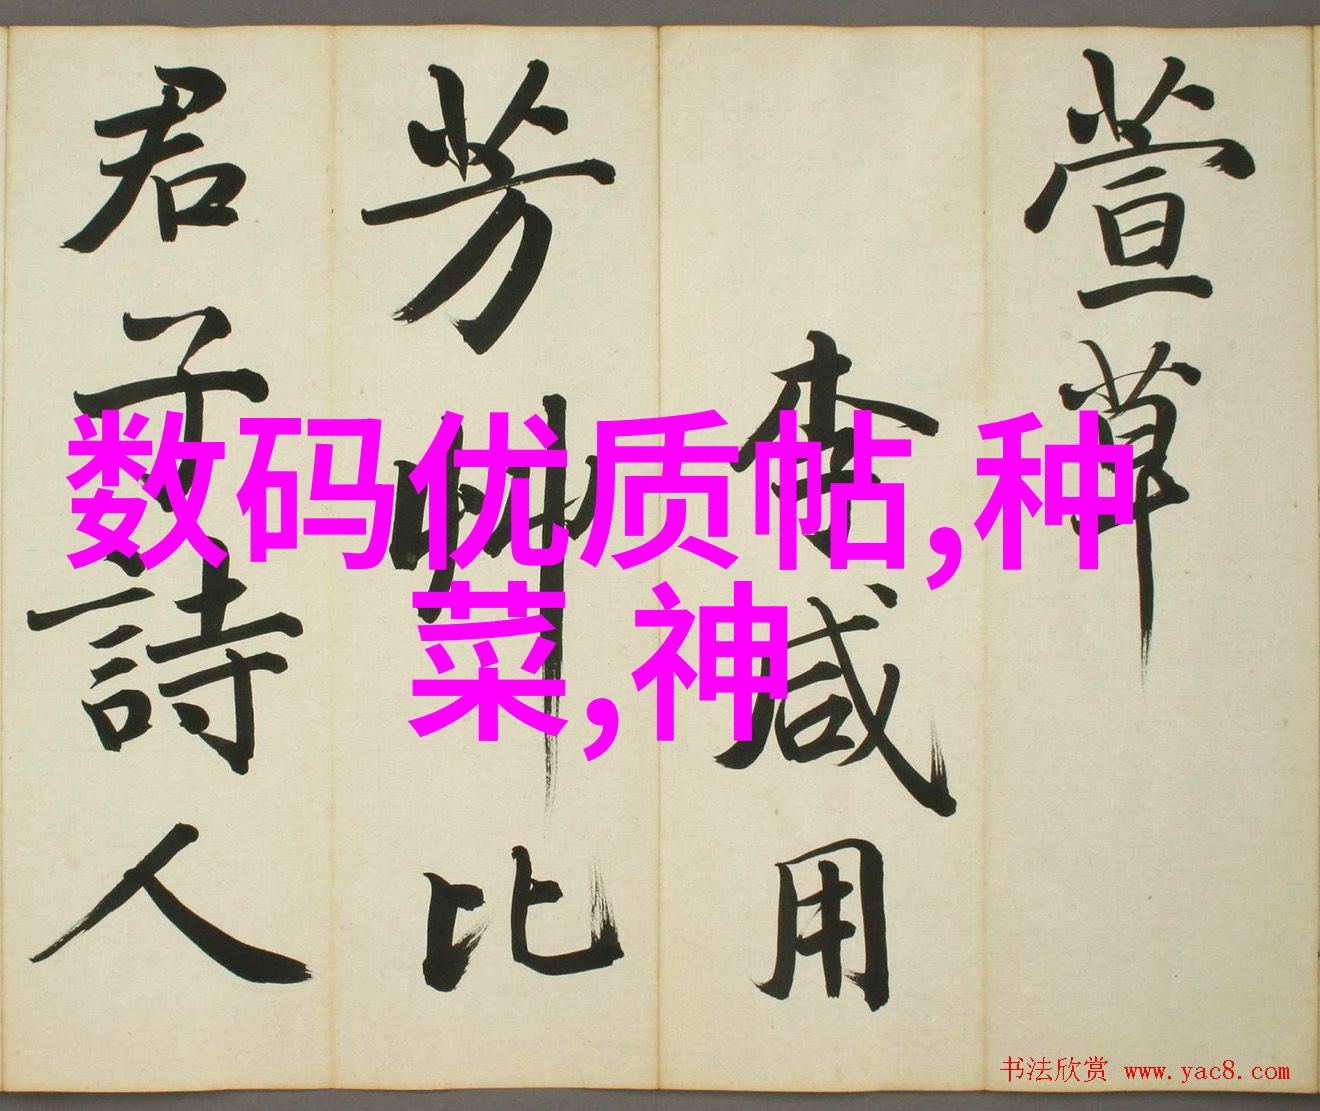 萱草
李咸用
芳草比
君子詩人
数码优质帖,种
菜,神
书法欣赏 www.yac8.com